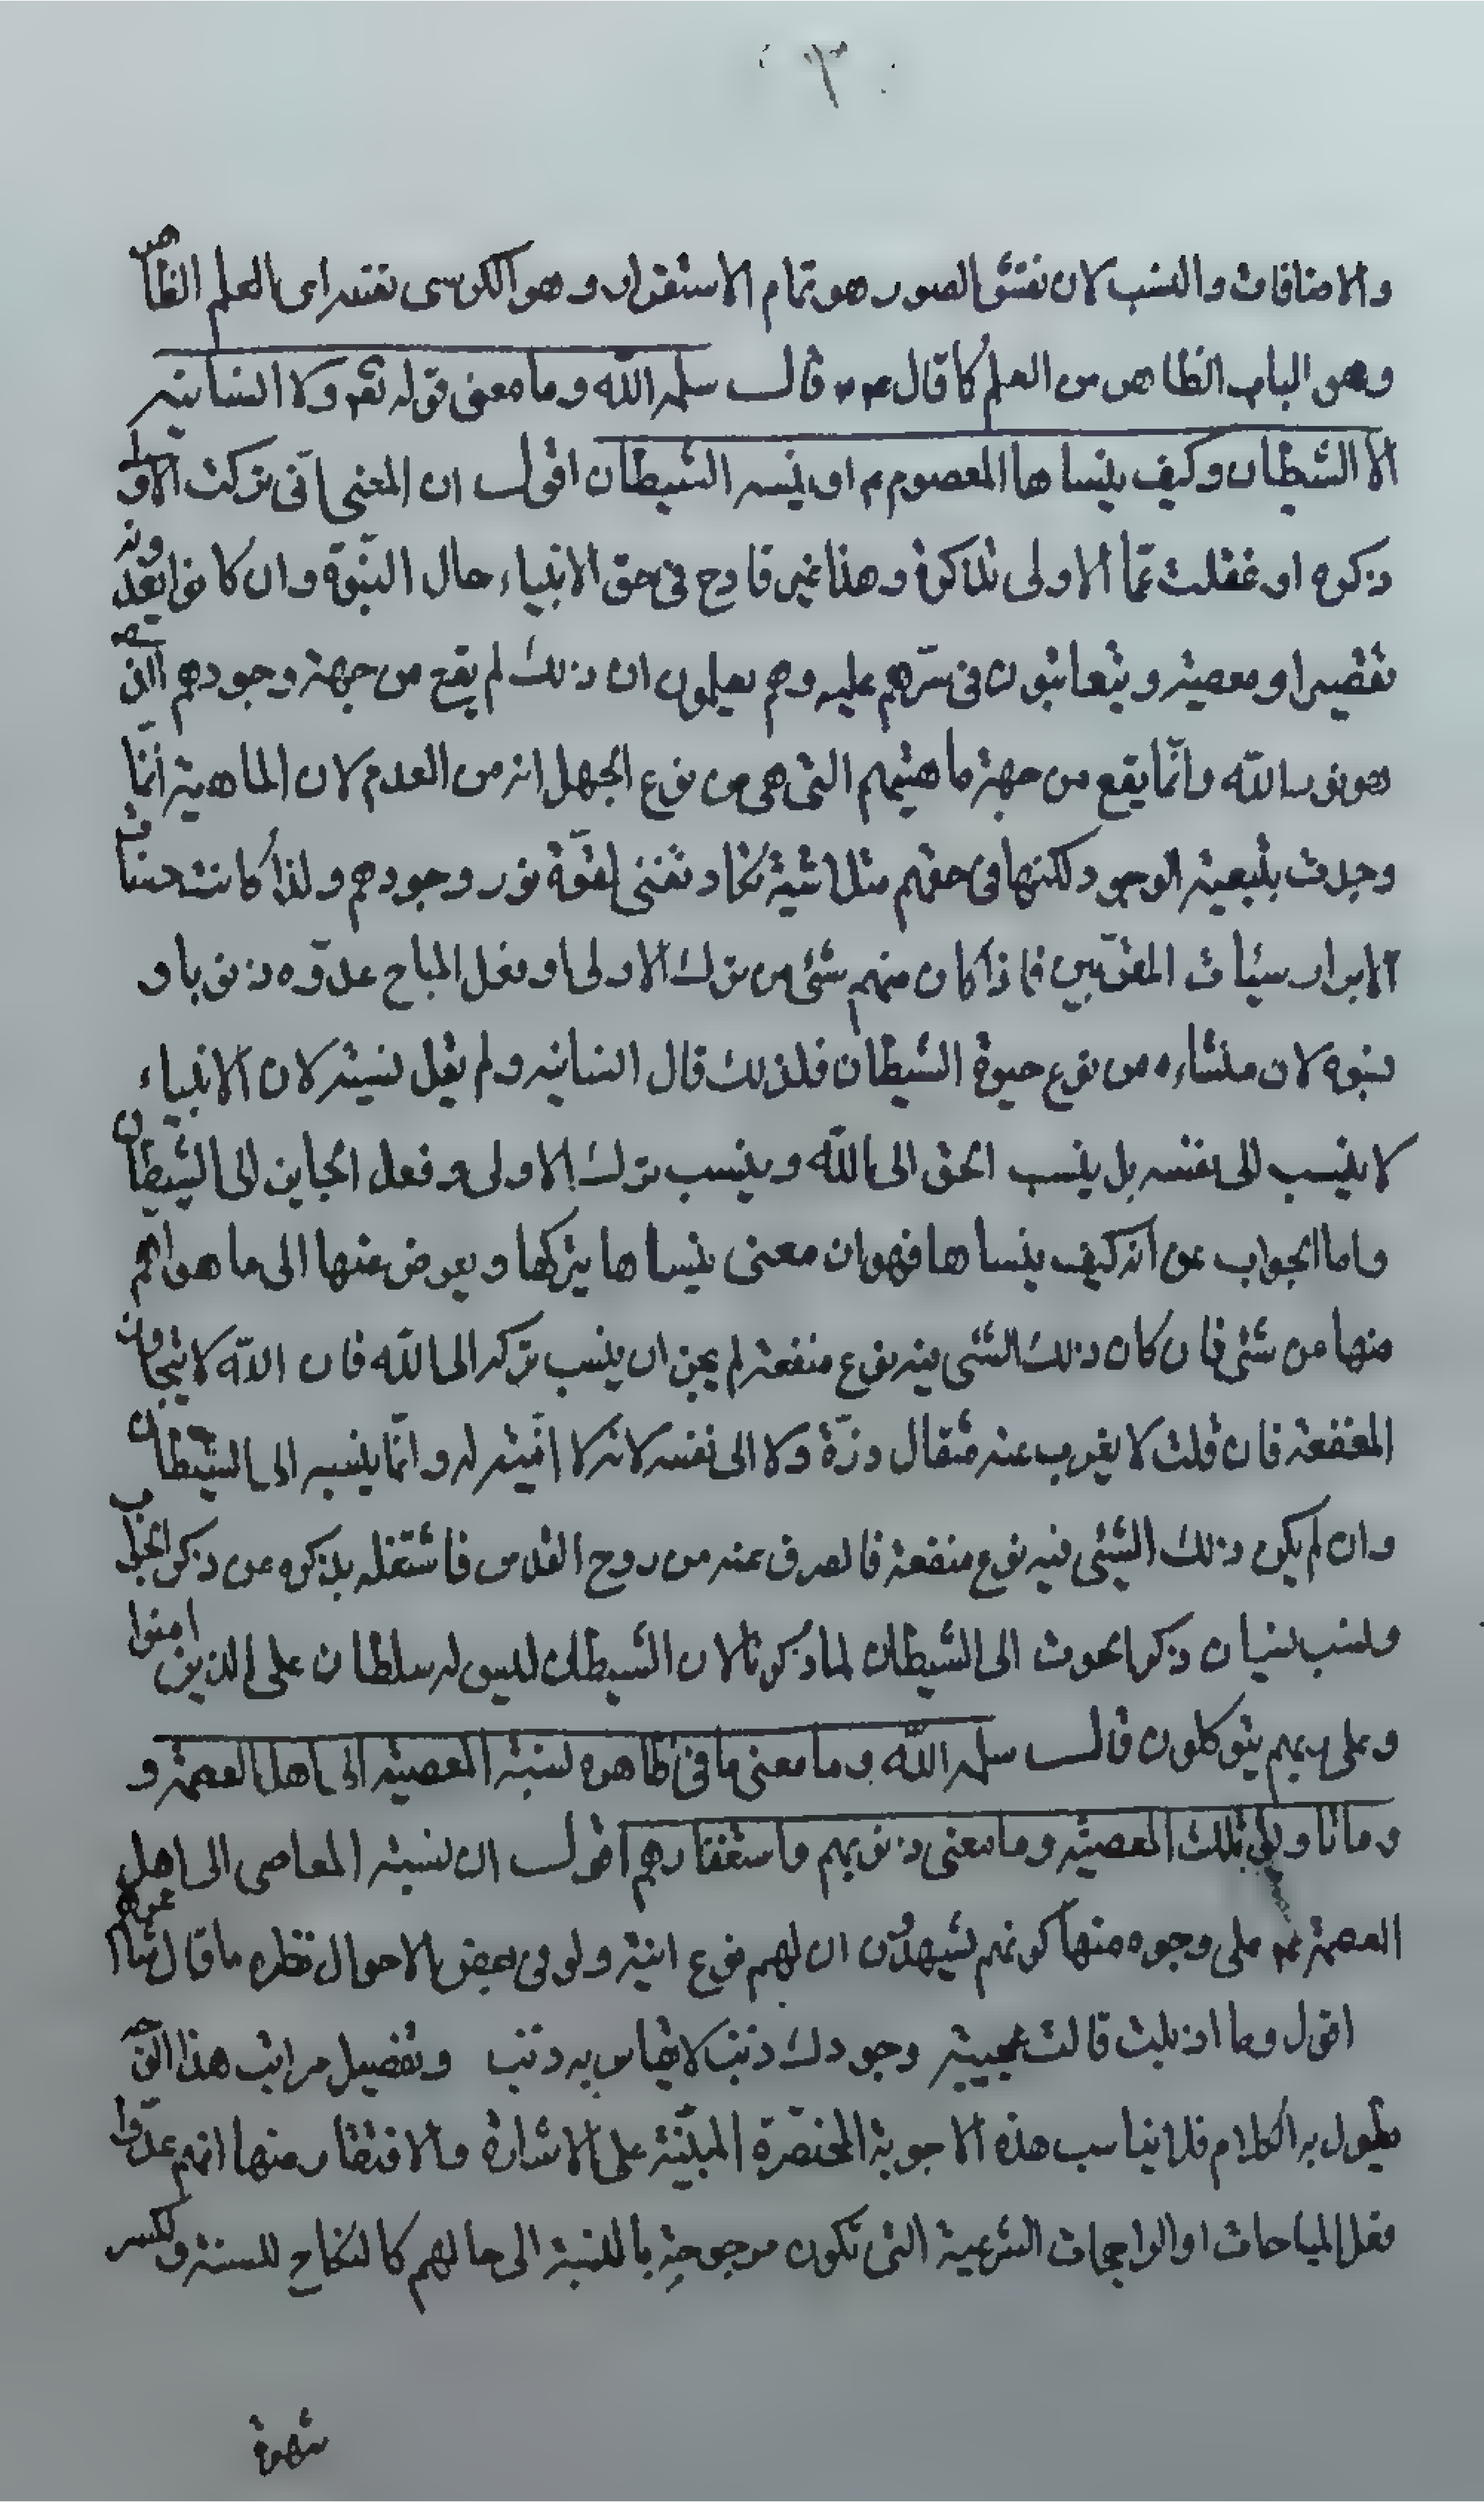 ٣
والاضافات والنسب لان نفس الصور هو تمام الاستقرار وهو الكرسى نفسه اى العلم الظاهر
وهو الباب الظاهر من العلم كما قال ع م قال سلمه الله وما معنى قوله تعـ وما انسانيه
الا الشيطان وكيف ينساها المعصوم ع م او ينسه الشيطان اقول ان المعنى انى تركت الاولى
ذكره او غفلت عما الاولى تذاكره وهذا غير قادح فى حق الانبياء حال النبوة وان كانوا يعدونه
تقصيرا او معصية ويتعاتبون فى سرهم عليه وهم يعلمون ان ذلك لم يقع من جهة وجودهم الذى
هو نور الله وانما يقع من جهة ماهيتهم التى هى من نوع الجهل انه من العدم لان الماهية انما
وجدت بتبعية الوجود لكنها فى حقهم متلاشية تكاد تفنى لقوة نور وجودهم ولذا كانت حسنات
الابرار سيئات المقربين فاذا كان منهم شئ من ترك الاولى او فعل المباح عدوه ذنوبا و
نسبوه لان منشاءه من نوع حيوة الشيطان فلذلك قال انسانيه ولم يقل نسيته لان الانبياء
لا ينسب الى نفسه بل ينسب الحق الى الله وينسب ترك الاولى وفعل الجايز الى الشيطان
واما الجواب عن انه كيف ينساها فهو ان معنى ينساها يتركها ويعرض عنها الى ما هو اهم
منها من شئ فان كان ذلك الشئ فيه نوع منفعة لم يجز ان ينسب تركه الى الله فان الله لا
المنفعة فان قلت لا يغرب عنه مثقال ذرة ولا الى نفسه لانه لا انية له وانما ينسبه الى الشيطان
وان لم يكن ذلك الشئ فيه نوع منفعة فالصرف عنه من روح القدس فاشتغله بذكره عن ذكر
ونسب نسيان ذكر الحوت الى الشيطان لما ذكرنا لان الشيطان ليس له سلطان على الذين امنوا
وعلى ربهم يتوكلون قال سلمه الله وما معنى ما فى ظاهره نسبة المعصية الى اهل العصمة و
وما تاويل تلك المعصية وما معنى ذنوبهم واستغفارهم اقول ان نسبة المعاصى الى اهل
العصمة ع م على وجوه منها كونهم يشهدون ان لهم نوع انية ولو فى بعض الاحوال نظره ما قال شاعرهم
اقول وما اذنبت قالت مجيبة وجودك ذنب لا يقاس به ذنب وتفصيل مراتب هذا
يطول به الكلام فلا يناسب هذه الاجوبة المختصرة المبنية على الاشارة والاقتصار منها انهم عدوا
فعل المباحات او الواجبات الشرعية التى تكون مرجوحة بالنسبة الى حالهم كالنكاح للسنة ولكسر
شهوة